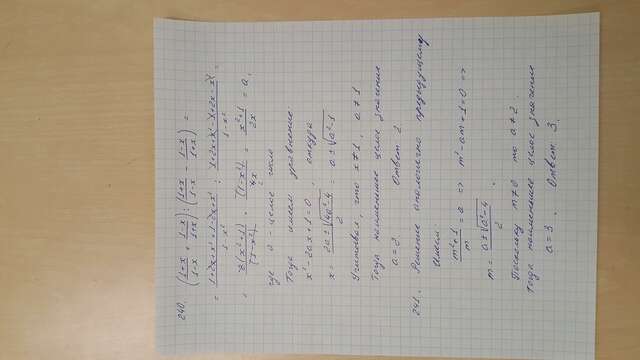 240. ((1+x)/(1-x) + (1-x)/(1+x)) : ((1+x)/(1-x) - (1-x)/(1+x)) =
= (1+2x+x²+1-2x+x²)/(1-x²) : (1+2x+x²-1+2x-x²)/(1-x²) =
= 2(x²+1)/(1-x²) · (1-x²)/4x = (x²+1)/2x = a,
где a - целое число
Тогда имеем уравнение
x²-2ax+1=0, откуда
x = (2a±√(4a²-4))/2 = a±√(a²-1)
Учитывая, что x≠1, a≠1
Тогда наименьшее целое значение
a=2 Ответ: 2
241. Решение аналогично предыдущему
Имеем:
(m²+1)/m = a => m²-am+1=0 =>
m = (a±√(a²-4))/2.
Поскольку то a≠2.
Тогда наименьшее целое значение
a=3. Ответ: 3.